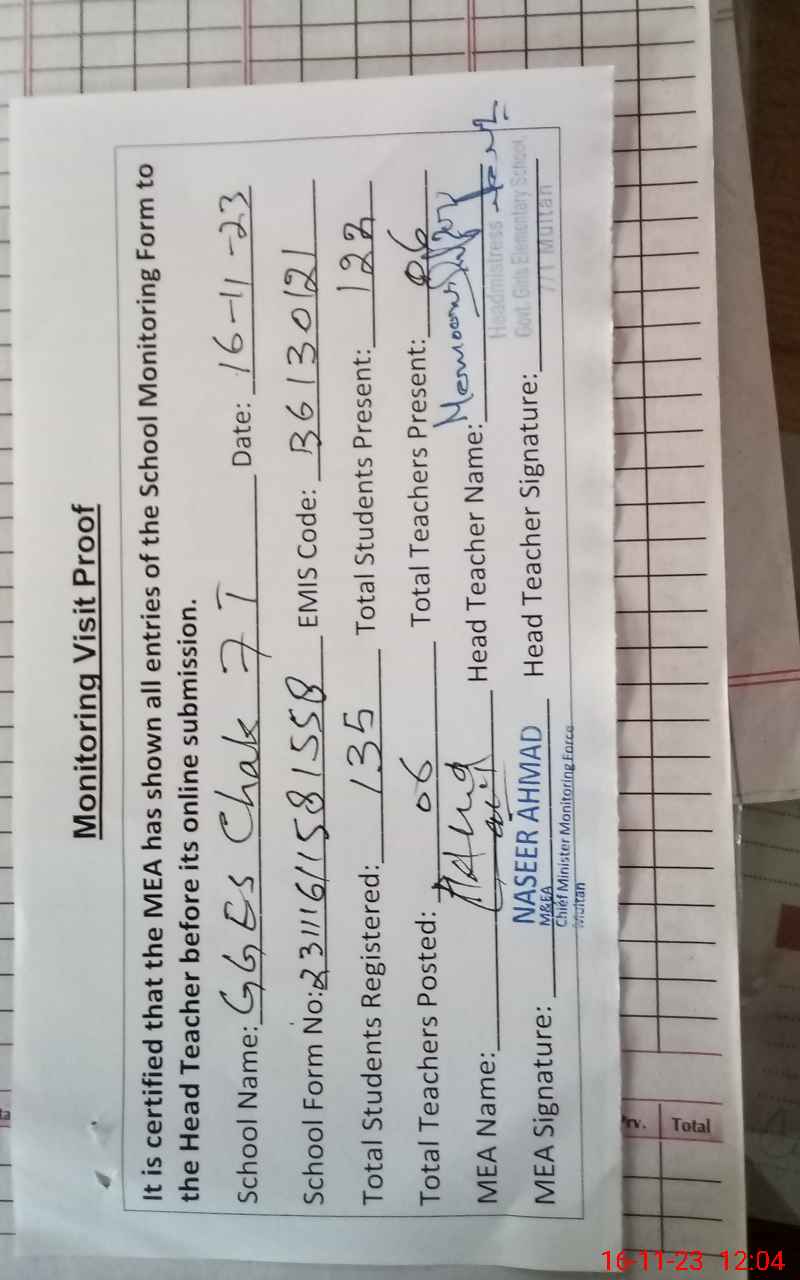 Monitoring Visit Proof
It is certified that the MEA has shown all entries of the School Monitoring Form to
the Head Teacher before its online submission.
School Name: GGES Chak 7T Date: 16-11-23
School Form No: 231116115815558 EMIS Code: 36130121
Total Students Registered: 135 Total Students Present: 122
Total Teachers Posted: 06 Total Teachers Present: 06
MEA Name: Head Teacher Name:
Headmistress
NASEER AHMAD
M&EA
Chief Minister Monitoring Force
Multan
Govt. Girls Elementary School,
7/T Multan
MEA Signature: Head Teacher Signature:
Prv. Total
16-11-23 12:04